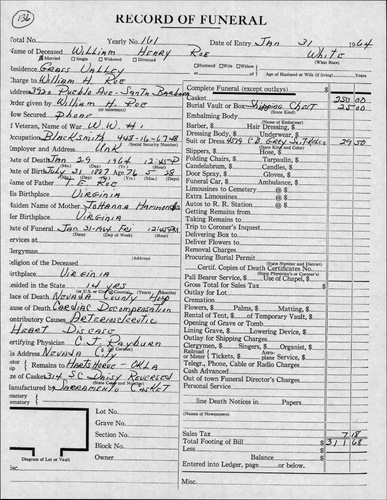 136
RECORD OF FUNERAL
Total No. Yearly No. 161 Date of Entry Jan 31 1964
Name of Deceased William Henry Roe White
Married Single Widowed Divorced Husband Wife Widow (What Race)
Residence Grass Valley Age of Husband or Wife (if living) Years
Charge to William H. Roe
Address 3920 Pueblo Ave - Santa Barbara
Order given by William H. Roe
How Secured Phone
If Veteran, Name of War W W I
Occupation Blacksmith
(Social Security Number)
Employer and Address Unk
Date of Death Jan 29 1964 12:45 P
Date of Birth July 31 1887 Age 76 5 28
Name of Father T. E. Roe
His Birthplace Virginia
Maiden Name of Mother Johanna Hammonds
Her Birthplace Virginia
Date of Funeral Jan 31-64 Fri
(Date) (Day of Week) (Hour)
Services at
(Address)
Clergyman
Religion of the Deceased
Birthplace Virginia
Resided in the State 14 yrs
Place of Death Nevada County Hosp
Cause of Death Cardiac Decompensation
Contributory Causes Arteriosclerotic
Heart Disease
Certifying Physician C. J. Rayburn
His Address Nevada City
Remains to Hartshorne - Okla
Size of Casket
Manufactured by Sacramento Casket
Cemetery
Crematory
Lot No.
Grave No.
Section No.
Block No.
Owner
Diagram of Lot or Vault
Complete Funeral (except outlays) $
Casket 250 00
Burial Vault or Box Shipping Chest 25 00
(State Kind)
Embalming Body
Barber, $ Hair Dressing, $
Dressing Body, $ Underwear, $
Suit or Dress 29 50
(State Kind and Color)
Slippers, $ Hose, $
Folding Chairs, $ Tarpaulin, $
Candelabrum, $ Candles, $
Door Spray, $ Gloves, $
Funeral Car, $ Ambulance, $
Limousines to Cemetery @ $
Extra Limousines @ $
Autos to R. R. Station @ $
Getting Remains from
Taking Remains to
Transporting Remains to
Cost of Trip to
Delivering Box to
Deliver Flowers to
Removal Charges
Procuring Burial Permit
(State Number and District)
Certif. Copies of Death Certificates No.
(State Physician's or Coroner's)
Pall Bearer Service, $ Use of Chapel, $
Gross Total for Sales Tax $
Outlay for Lot
Cremation
Flowers, $ Palms, $ Matting, $
Rental of Tent, $ of Temporary Vault, $
Opening of Grave or Tomb
Lining Grave, $ Lowering Device, $
Outlay for Shipping Charges
Clergymen, $ Singers, $ Organist, $
Railroad or Motor Tickets, $ Aero-plane Service, $
Telegr., Phone, Cable or Radio Charges
Cash Advanced
Out of town Funeral Director's Charges
Personal Service, $
line Death Notices in Papers
(Names of Newspapers)
Sales Tax 7 18
Total Footing of Bill $ 311 68
Less
Balance $
Entered into Ledger, page or below.
Misc.